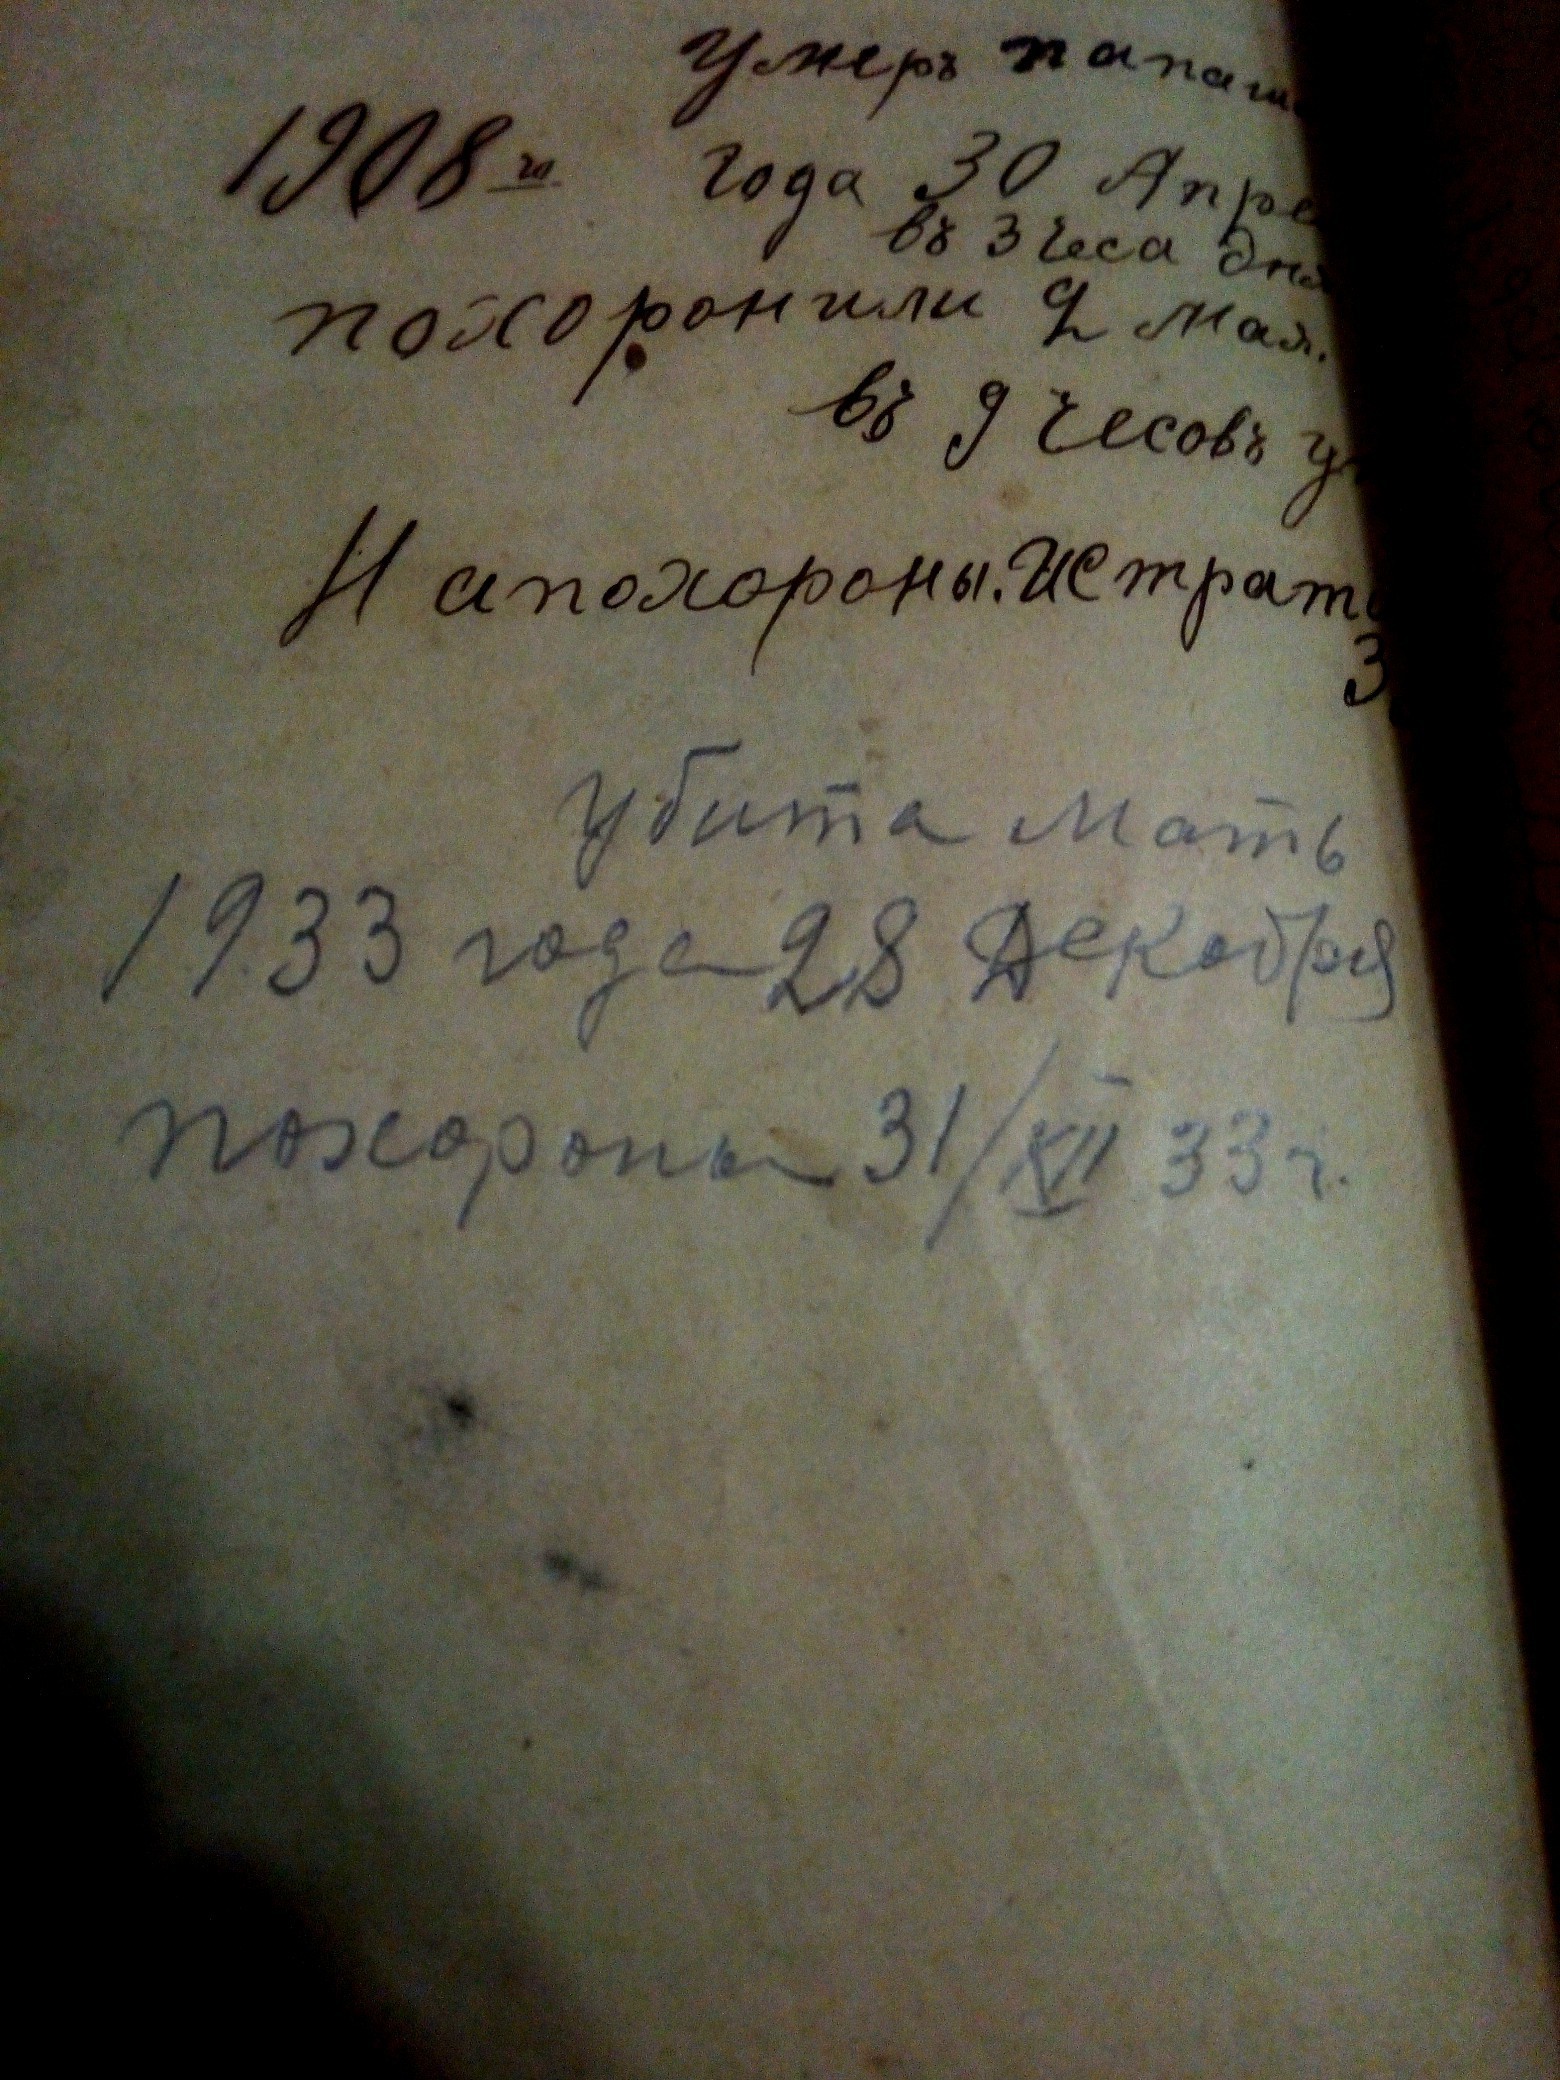 Умеръ папаш
1908 го года 30 Апре
въ 3 чеса дня
похоронили 2 мая.
въ 9 чесовъ у
На похороны. Истрат
3
убита мать
1933 года 28 Декабря
похороны 31/XII 33 г.